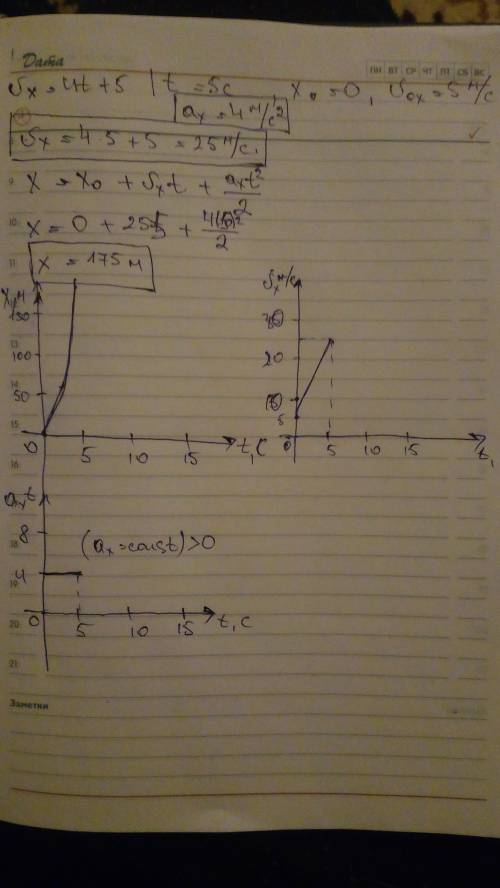 Дата
ПН ВТ СР ЧТ ПТ СБ ВС
υx = 4t + 5 | t = 5c, x₀ = 0, υ₀x = 5 м/с
ax = 4 м/с²
υx = 4·5 + 5 = 25 м/с,
x = x₀ + υxt + axt²/2
x = 0 + 25·5 + 4(5)²/2
x = 175 м
x, м
150
100
50
0 5 10 15 t, c
υx м/с
20
5
0 5 10 15 t,
axt
8
4
(ax = const) > 0
0 5 10 15 t, c
9
10
11
13
14
15
16
18
19
20
21
Заметки